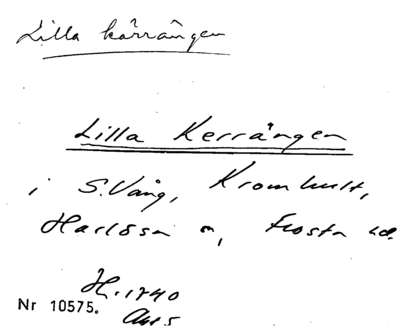 Lilla kärrängen
Lilla Kerrängen
i S. Vång, Kromhult,
Harlösa s, Frosta hd.
H. 1740
Nr 10575.